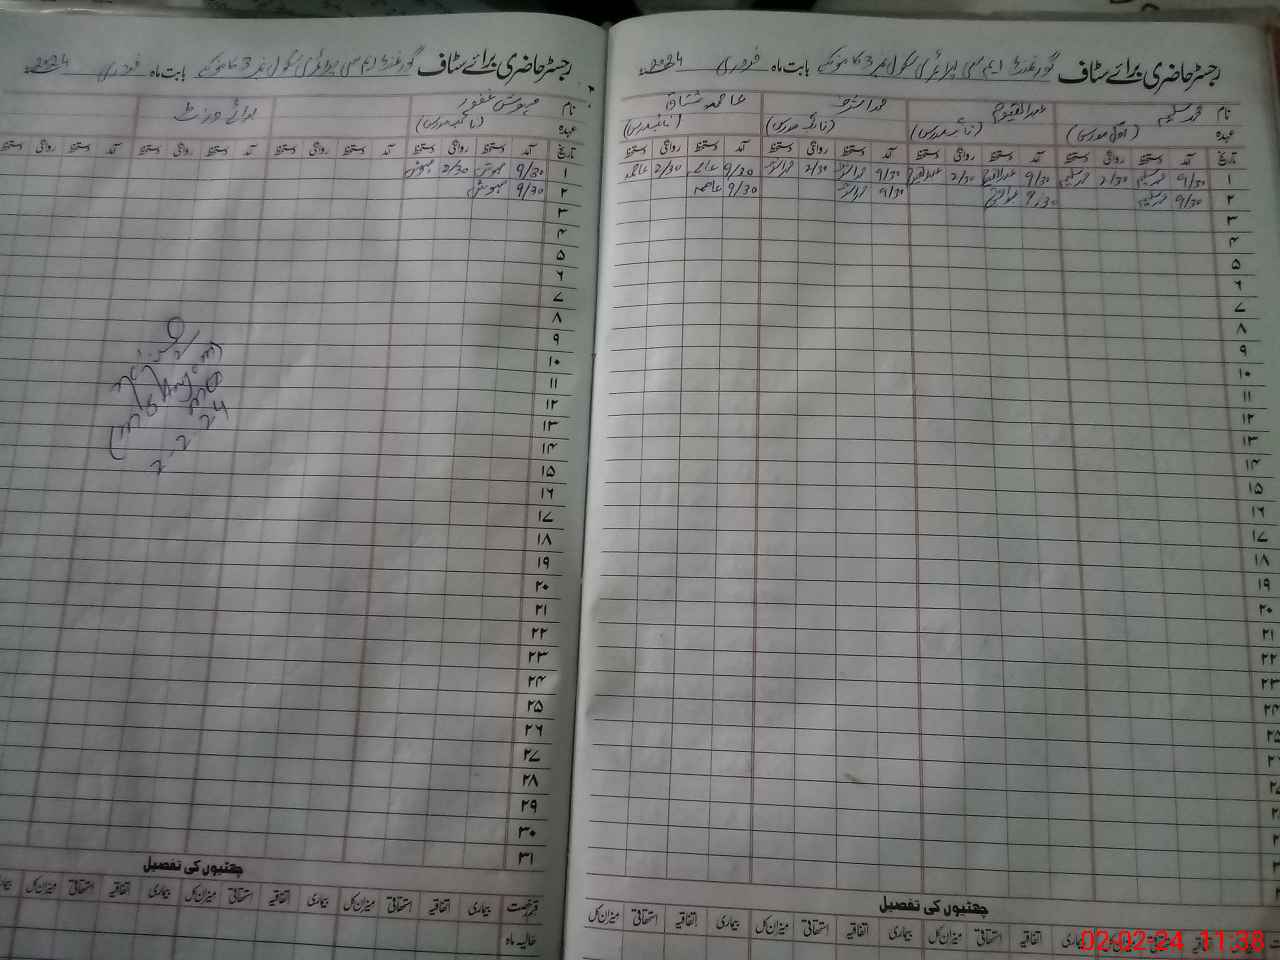 رجسٹر حاضری برائے سٹاف گورنمنٹ ایم سی پرائمری سکول نمبر 3 کامونکے بابت ماہ فروری 2024
نام محمد سلیم عبدالقیوم محمد اشرف عاصمہ مشتاق
عہدہ (اول مدرس) (نائب مدرس) (نائب مدرس) (نائب مدرس)
تاریخ آمد دستخط روانگی دستخط آمد دستخط روانگی دستخط آمد دستخط روانگی دستخط آمد دستخط روانگی دستخط
۱ 9/30 محمد سلیم 2/30 محمد سلیم 9/30 عبدالقیوم 2/30 عبدالقیوم 9/30 محمد اشرف 2/30 محمد اشرف 9/30 عاصمہ 2/30 عاصمہ
۲ 9/30 محمد سلیم 9/30 عبدالقیوم 9/30 محمد اشرف 9/30 عاصمہ
۳
۴
۵
۶
۷
۸
۹
۱۰
۱۱
۱۲
۱۳
۱۴
۱۵
۱۶
۱۷
۱۸
۱۹
۲۰
۲۱
۲۲
۲۳
۲۴
۲۵
چھٹیوں کی تفصیل
بیماری اتفاقیہ استحقاقی میزان کل بیماری اتفاقیہ استحقاقی میزان کل بیماری اتفاقیہ استحقاقی میزان کل
رجسٹر حاضری برائے سٹاف گورنمنٹ ایم سی پرائمری سکول نمبر 3 کامونکے بابت ماہ فروری 2024
نام مہوش غفور برائے وزٹ
عہدہ (نائب مدرس)
تاریخ آمد دستخط روانگی دستخط آمد دستخط روانگی دستخط آمد دستخط روانگی دستخط آمد دستخط روانگی دستخط
۱ 9/30 مہوش 2/30 مہوش
۲ 9/30 مہوش
۳
۴
۵
۶
۷
۸
۹
۱۰
۱۱
۱۲
۱۳
۱۴
۱۵
۱۶
۱۷
۱۸
۱۹
۲۰
۲۱
۲۲
۲۳
۲۴
۲۵
۲۶
۲۷
۲۸
۲۹
۳۰
۳۱
2-2-24
چھٹیوں کی تفصیل
قسم رخصت بیماری اتفاقیہ استحقاقی میزان کل بیماری اتفاقیہ استحقاقی میزان کل بیماری اتفاقیہ استحقاقی میزان کل بیماری
حالیہ ماہ
02-02-24 11:38